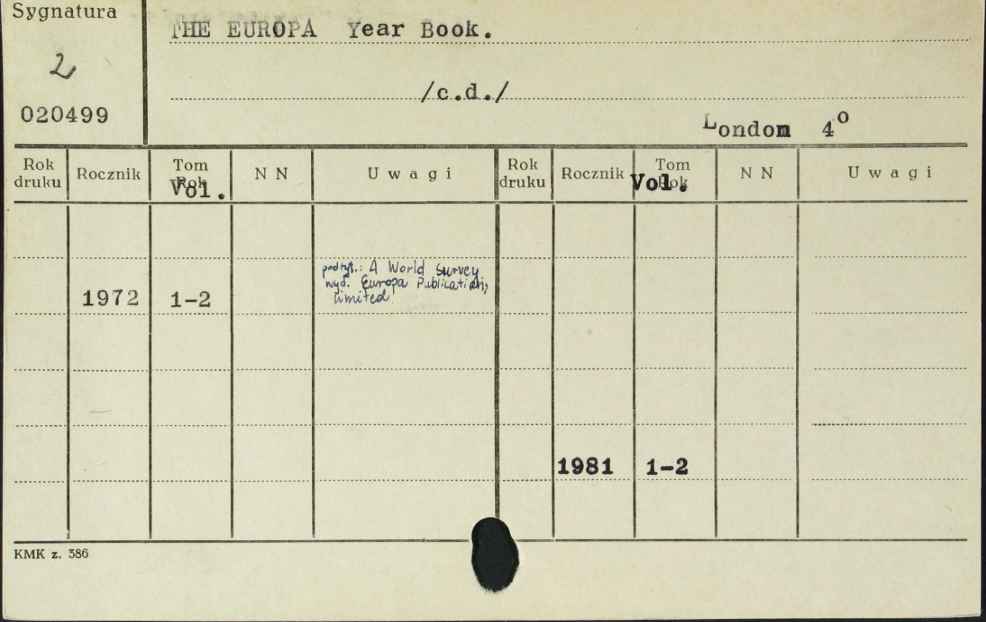 Sygnatura
THE EUROPA Year Book.
2
/c.d./
020499
London 4º
Rok druku Rocznik Tom Rok Vol. N N Uwagi Rok druku Rocznik Tom Rok Vol. N N Uwagi
podtyt.: A World Survey
wyd. Europa Publications
Limited
1972 1-2
1981 1-2
KMK z. 386